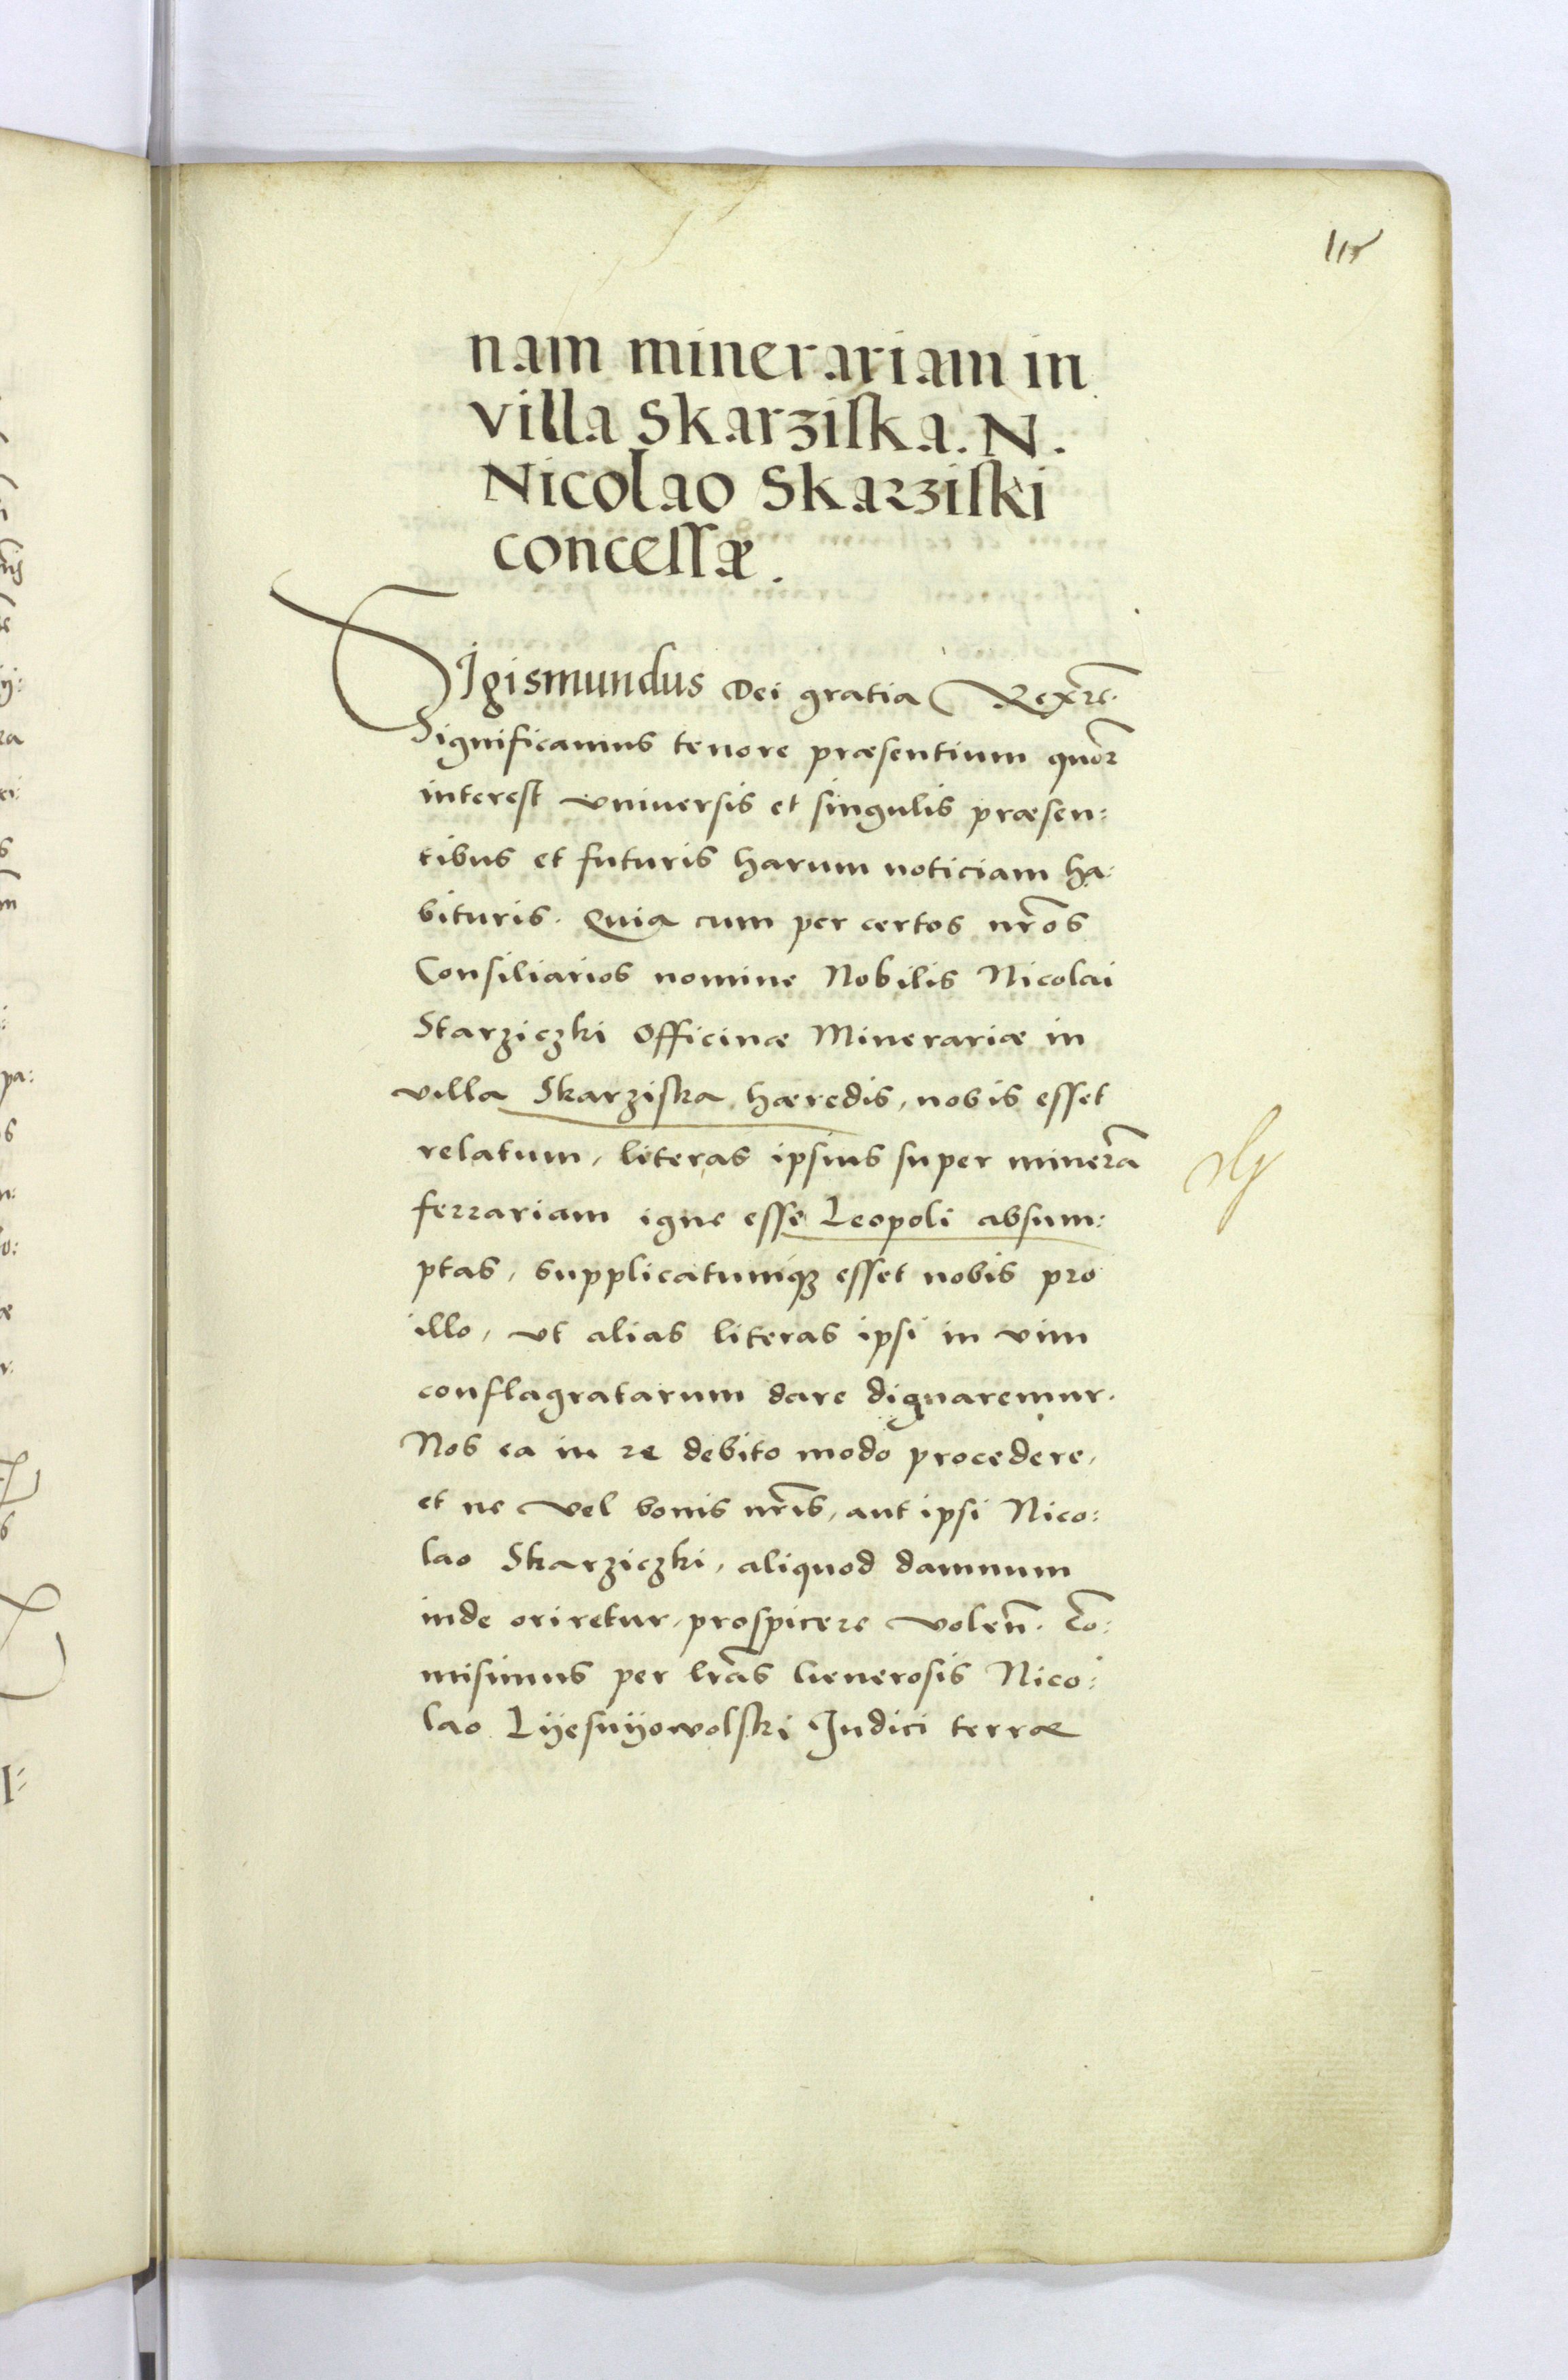 nam minerariam in
villa Skarziſka. N.
Nicolao Skarziſki
conceſſæ.
SIgismundus Dei gratia Rex etc.
Significamus tenore præsentium quor̃
interest vniversis et singulis præsen:
tibus et futuris harum noticiam ha:
bituris. Quia cum per certos nr̃os
Consiliarios nomine Nobilis Nicolai
Starziczki Officinæ Minerariæ in
villa Skarziska hæredis, nobis esset
relatum, literas ipsius super minerã
ferrariam igne esse Leopoli absum:
ptas, supplicatumqꝫ esset nobis pro
illo, vt alias literas ipsi in vim
conflagratarum dare dignaremur.
Nos ea in re debito modo procedere,
et ne vel bonis nr̃is, aut ipsi Nico:
lao Skarziczki, aliquod damnum
inde oriretur, prospicere volen̄. Cō:
misimus per lr̃as Generosis Nico:
lao Lyesnyowolski Iudici terræ